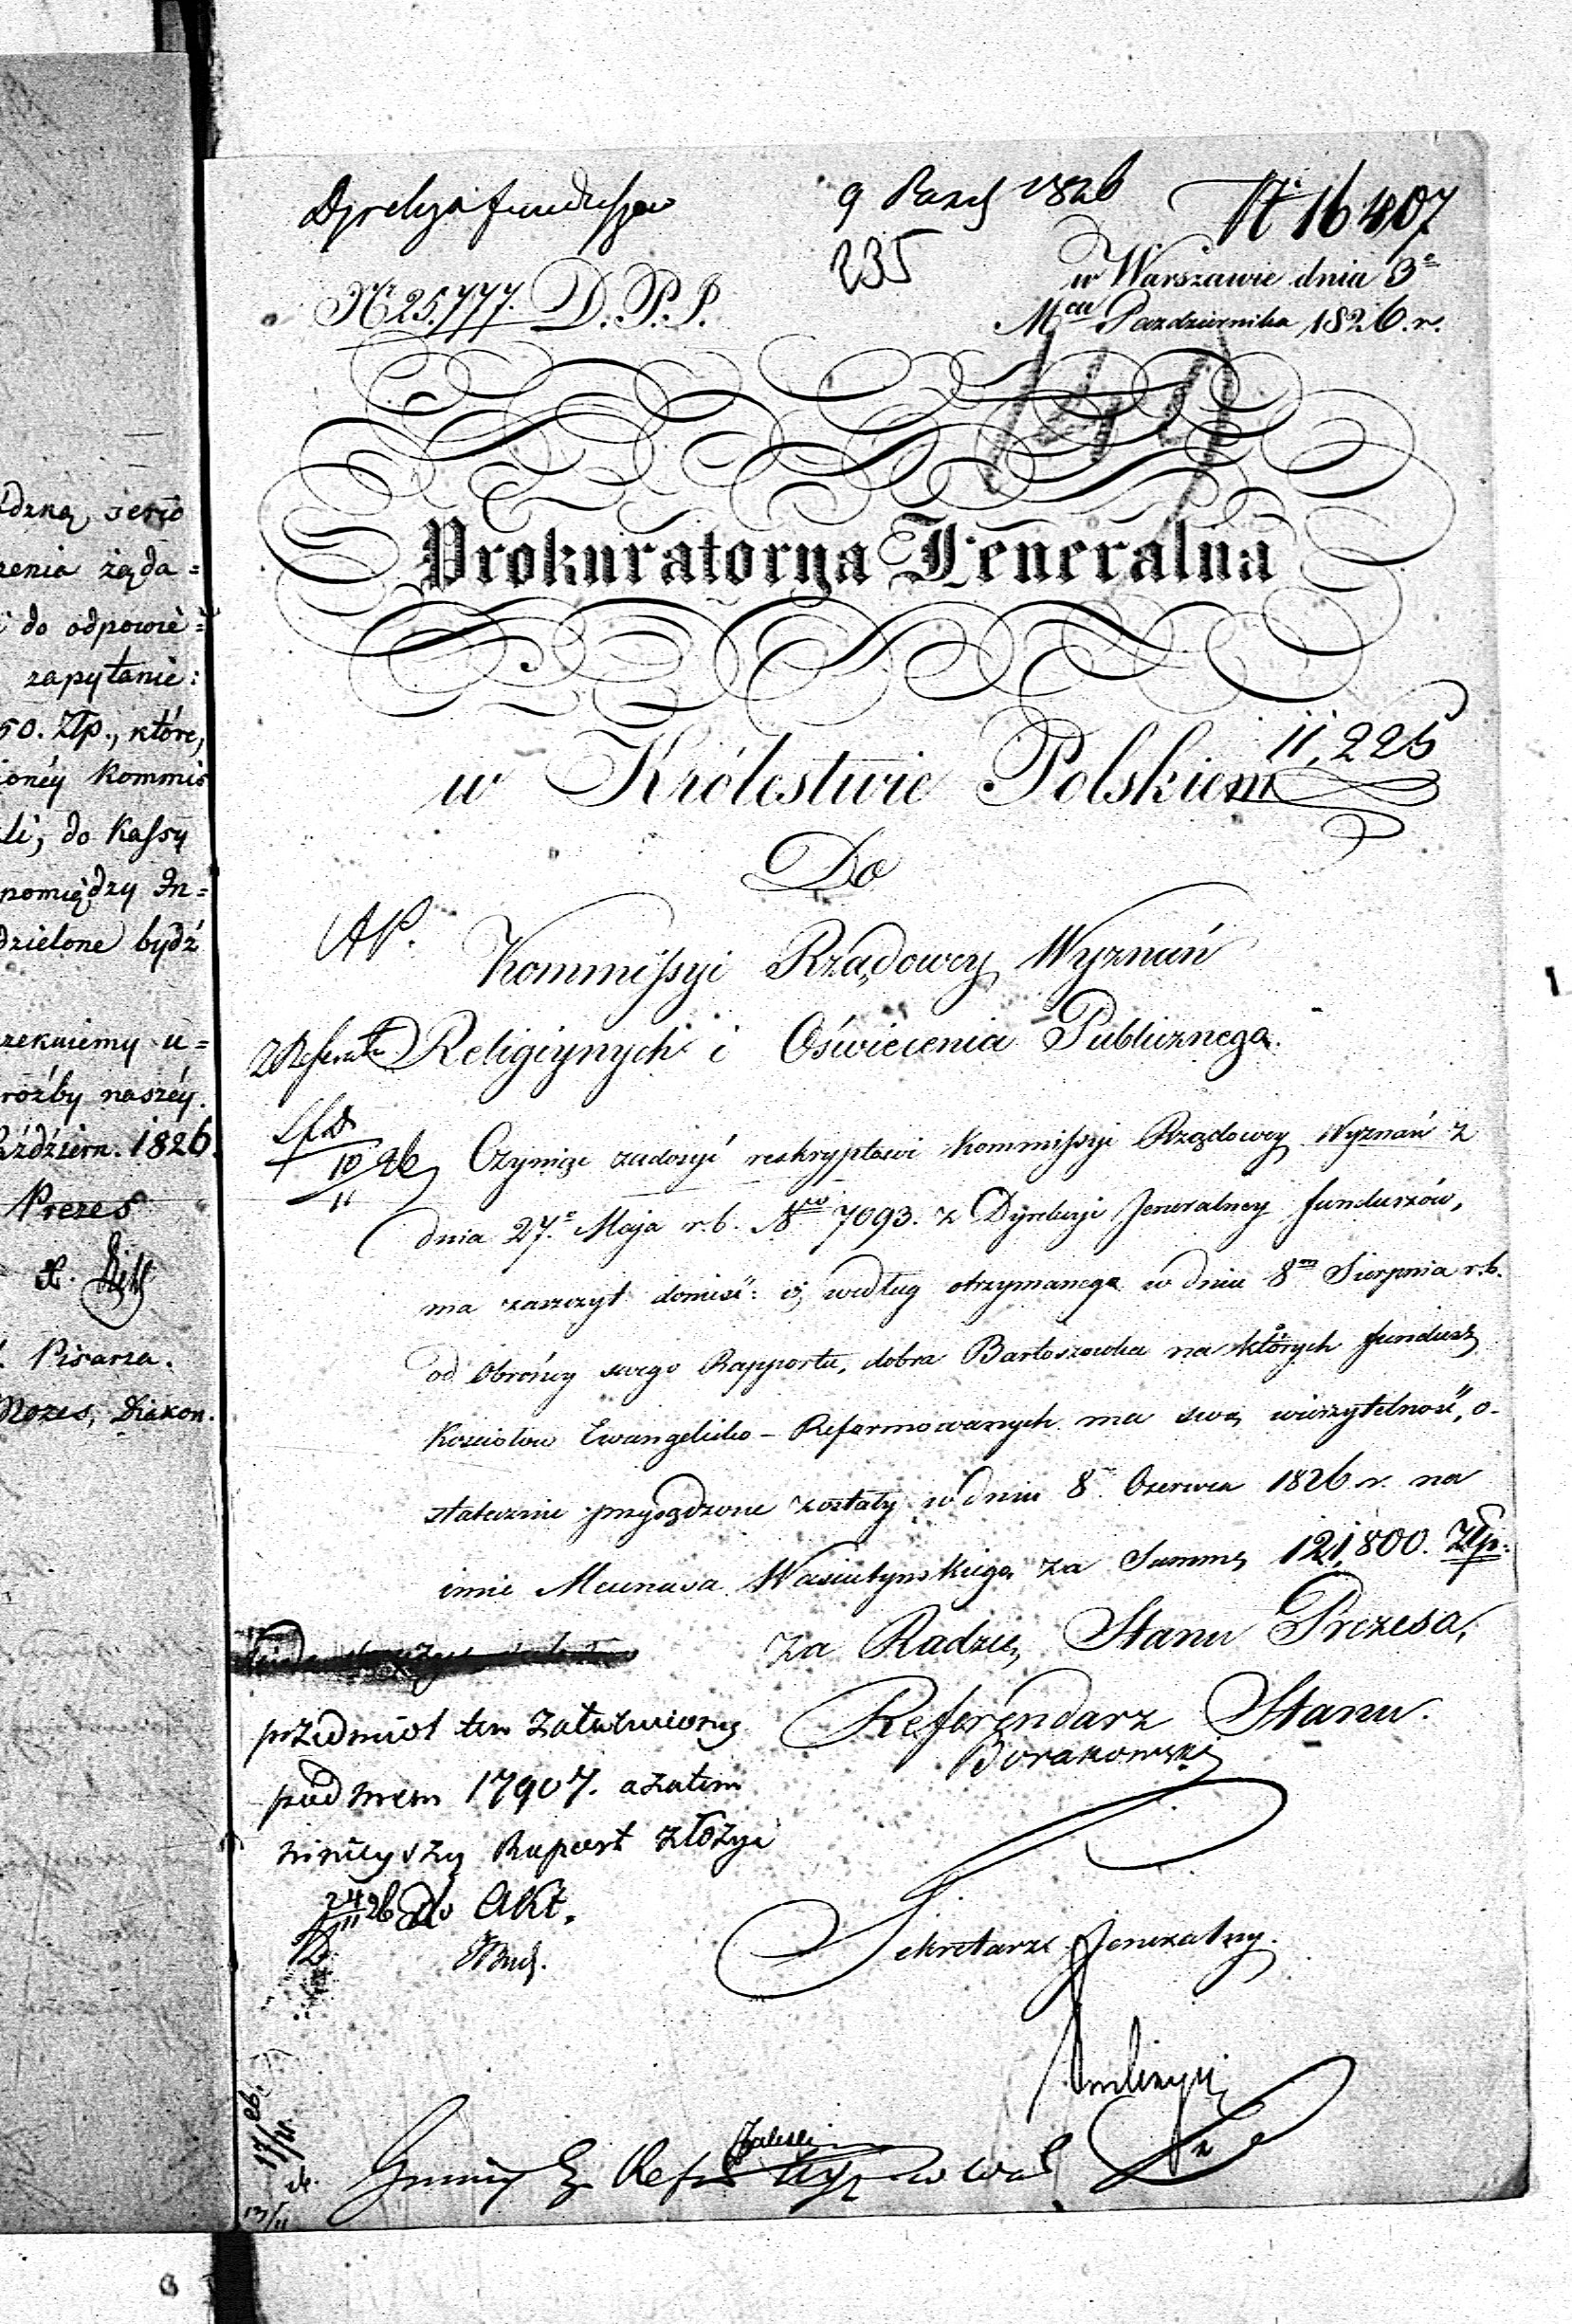 ídzną, jeśiö
zenia żąda=
i do odpowie=
zapytanie:
50. Złp., które,
ionéy Kommis
li, do Kassy
pomiędzy In=
dzielone bydź
zekuiemy u=
roźby naszéy.
Paźdźiern. 1826.
Prezes
X.
Pisarza.
Mozes, Diakon.
Dyrekcya funduszow
9 Pazd 1826
№ 16407
235
№ 25,777. D.P.P.
w Warszawie dnia 3º
Mca Pazdziernika 1826.r.
141
Prokuratorya Jeneralna
w Królestwie Polskiem
11,225
Do
AP.
Kommissyi Rządowey Wyznań
Religiynych i Oświecenia Publicznego.
10/11 26
Czyniąc zadosyć reskryptowi Kommissyi Rządowey Wyznań z
dnia 27.º Maja r.b. Nro 7093. z Dyrekcyi Jeneralney funduszów,
ma zaszczyt donieść: iż według otrzymanego w dniu 8m Sierpnia r.b.
od Obrońcy swego Rapportu, dobra Bartoszowka na których fundusz
Kosciołow Ewangelicko-Reformowanych ma swą wierzytelność, o-
statecznie przysądzone zostały w dniu 8 Czerwca 1826 r. na
imie Wasiutynskiego za Summę 121,800. Złp.
za Radzcę Stanu Prezesa,
Referendarz Stanu.
Borakowski
przedmiot ten załatwiony
pod nrem 17907. azatem
ninieyszy Raport złożyć
24/11 26 do Akt.
Sekretarz Jeneralny.
17/11
13/11